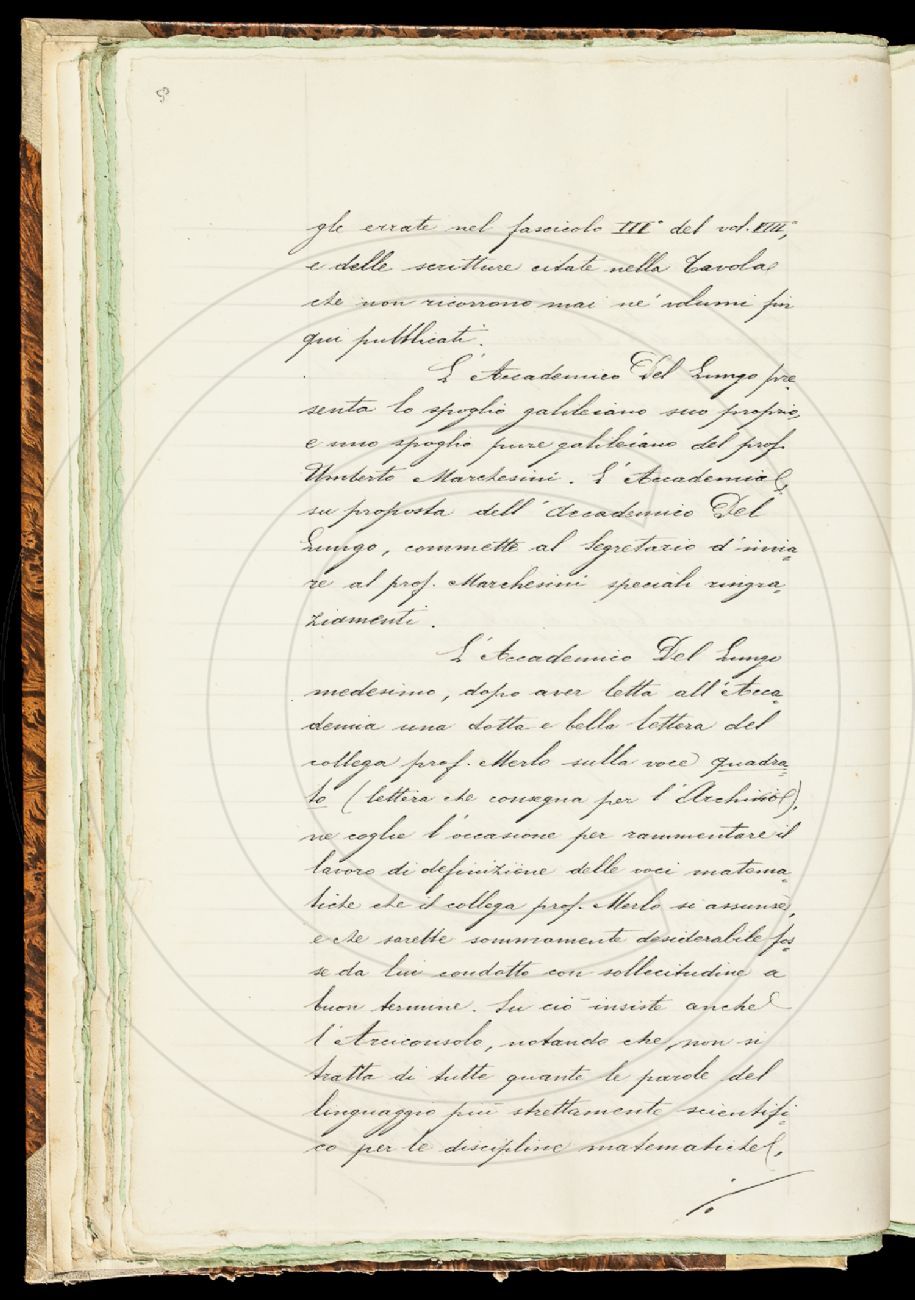 gle errate nel fascicolo III° del vol. VIII°,
e delle scritture citate nella Tavola
che non ricorrono mai ne' volumi fin
qui pubblicati.
L'Accademico Del Lungo pre
senta lo spoglio galileiano suo proprio,
e uno spoglio pure galileiano del prof.
Umberto Marchesini. L'Accademia,
su proposta dell'Accademico Del
Lungo, commette al Segretario d'invia=
re al prof. Marchesini speciali ringra=
ziamenti.
L'Accademico Del Lungo
medesimo, dopo aver letta all'Acca=
demia una dotta e bella lettera del
collega prof. Merlo sulla voce quadra=
to (lettera che consegna per l'Archivio),
ne coglie l'occasione per rammentare il
lavoro di definizione delle voci matema=
tiche che il collega prof. Merlo si assunse,
e che sarebbe sommamente desiderabile fos=
se da lui condotto con sollecitudine a
buon termine. Su ciò insiste anche
l'Arciconsolo, notando che, non si
tratta di tutte quante le parole del
linguaggio più strettamente scientifi=
co per le discipline matematiche,
./.